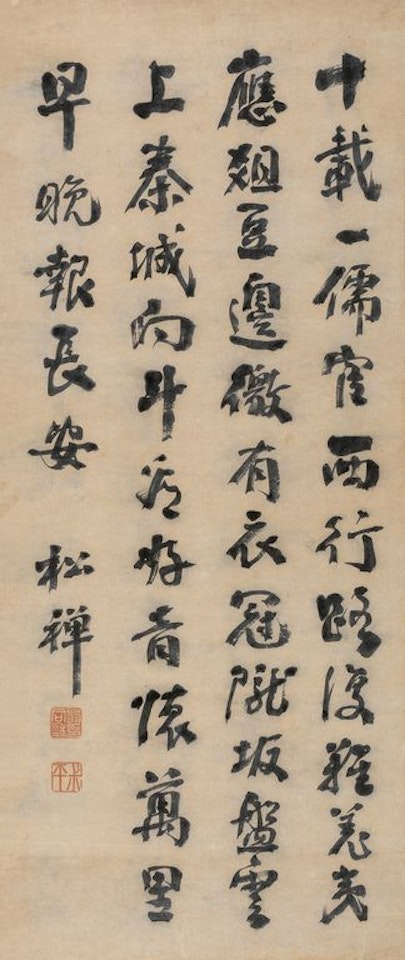 十載一儒官西行路復難羌夷
應俎豆邊徼有衣冠隴坂盤雲
上秦城向斗看好音懷萬里
早晚報長安 松禪
叔平